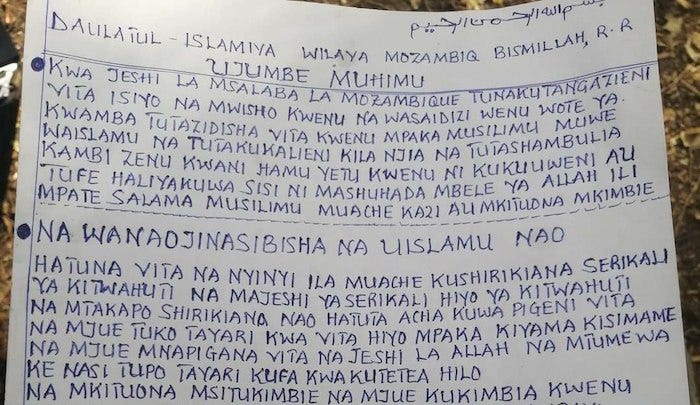 بسم الله الرحمن الرحيم
DAULATUL - ISLAMIYA WILAYA MOZAMBIQ BISMILLAH, R.R
UJUMBE MUHIMU
KWA JESHI LA MSALABA LA MOZAMBIQUE TUNAKUTANGAZIENI
VITA ISIYO NA MWISHO KWENU NA WASAIDIZI WENU WOTE YA.
KWAMBA TUTAZIDISHA VITA KWENU MPAKA MUSILIMU MUWE
WAISLAMU NA TUTAKUKALIENI KILA NJIA NA TUTASHAMBULIA
KAMBI ZENU KWANI HAMU YETU KWENU NI KUKUUWENI AU
TUFE HALIYAKUWA SISI NI MASHUHADA MBELE YA ALLAH ILI
MPATE SALAMA MUSILIMU MUACHE KAZI AU MKITUONA MKIMBIE
NA WANAOJINASIBISHA NA UISLAMU NAO
HATUNA VITA NA NYINYI ILA MUACHE KUSHIRIKIANA SERIKALI
YA KITWAHUTI NA MAJESHI YA SERIKALI HIYO YA KITWAHUTI
NA MTAKAPO SHIRIKIANA NAO HATUTA ACHA KUWA PIGENI VITA
NA MJUE TUKO TAYARI KWA VITA HIYO MPAKA KIYAMA KISIMAME
NA MJUE MNAPIGANA VITA NA JESHI LA ALLAH NA MTUMEWA
KE NASI TUPO TAYARI KUFA KWA KUTETEA HILO
NA MKITUONA MSITUKIMBIE NA MJUE KUKIMBIA KWENU